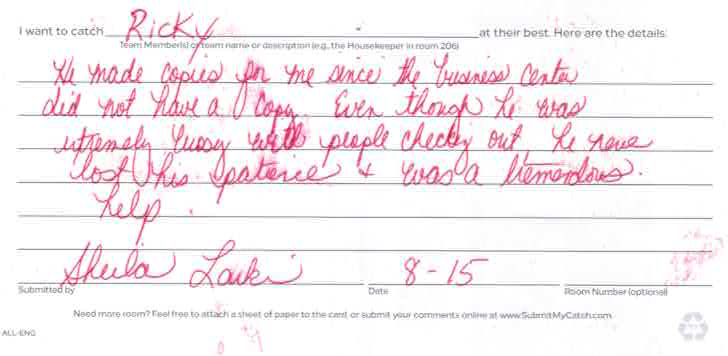 I want to catch Ricky at their best. Here are the details:
Team Member(s) or team name or description (e.g., the Housekeeper in room 206)
He made copies for me since the business Center
did not have a Copy. Even though he was
extremely bussy with people checking out, he never
lost his patience & was a tremendous
help.
Sheila 8-15
Submitted by Date Room Number (optional)
Need more room? Feel free to attach a sheet of paper to the card or submit your comments online at www.SubmitMyCatch.com.
ALL-ENG